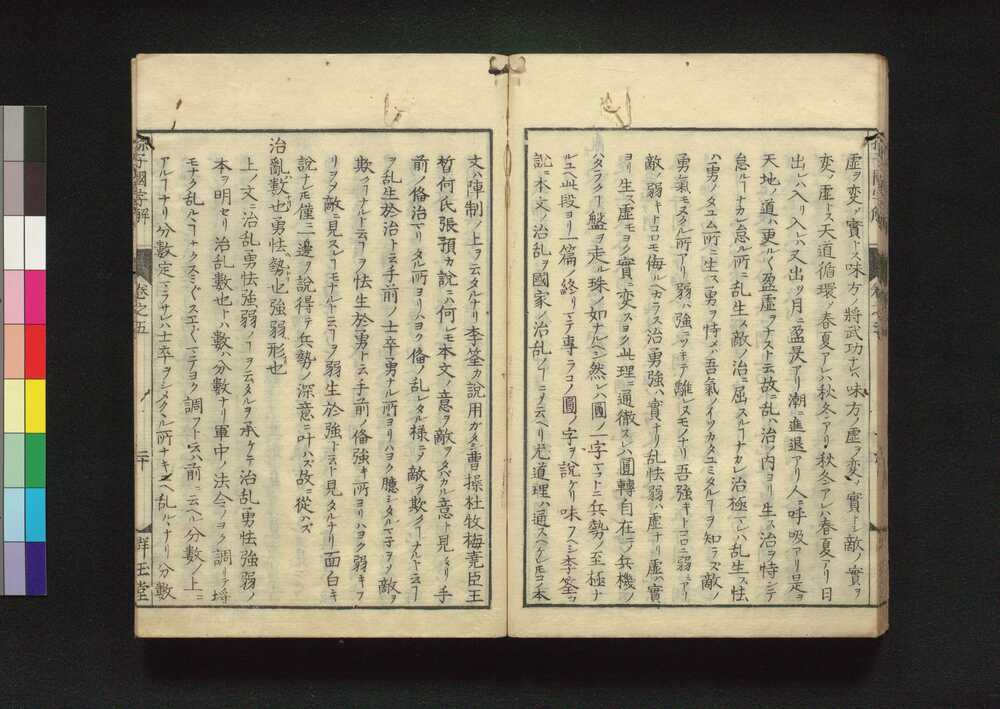 虚ヲ変メ實トス味方ノ將武功ナレハ味方ノ虚ヲ変メ實トシ敵ノ實ヲ
変メ虚トス天道循環ノ春夏アレハ秋冬アリ秋冬アレハ春夏アリ日
出レハ入リ入レハ又出ツ月ニ盈昃アリ潮ニ進退アリ人ニ呼吸アリ是ヲ
天地ノ道ハ更ル〱盈虚ヲナスト云故ニ乱ハ治ノ内ヨリ生ス治ヲ恃シテ
怠ルヿナカレ怠ル所ニ乱生ス敵ノ治ニ屈スルヿナカレ治極マレハ乱生ス怯
ハ勇ノタユム所ニ生ス勇ヲ恃メハ吾氣ノイツカタユミタルヿヲ知ラス敵ノ
勇氣モヌクル所アリ弱ハ強ニツキテ離レヌモノナリ吾強キトコロニ弱アリ
敵ノ弱キトコロモ侮ルヘカラス治勇強ハ實ナリ乱怯弱ハ虚ナリ虚ハ實
ヨリ生ス虚モヨク實ニ変スヨク此理ニ通徹スレハ圓轉自在ニメ兵機ノ
ハタラクヿ盤ヲ走ル珠ノ如ナルヘシ然レハ圓ノ一字マコトニ兵勢ノ至極ナ
ルユヘ此段ヨリ一篇ノ終リマテ専ラコノ圓ノ字ヲ説ケリ味フヘシ李筌カ
説ニ本文ノ治乱ヲ國家ノ治乱ノヿニメ云ヘリ尤道理ハ通スヘケレモコノ本
文ハ陣制ノ上ヲ云タルナリ李筌カ説用ガタシ曹操杜牧梅堯臣王
晳何氏張預カ説ニハ何レモ本文ノ意ヲ敵ヲタバカル意ト見タリ手
前ノ備治マリタル所ヨリハヨク備ノ乱レタル様ニメ敵ヲ欺クヿナルト云フ
ヲ乱生於治ト云手前ノ士卒勇ナル所ヨリハヨク臆シタルマ子ヲメ敵ヲ
欺クヿナルト云フヲ怯生於勇ト云手前ノ備強キ所ヨリハヨク弱キフ
リヲメ敵ニ見スルヿモナルト云フヲ弱生於強ト云ト見タルナリ面白キ
説ナレモ僅ニ一邊ヲ説得テ兵勢ノ深意ニ叶ハズ故ニ從ハズ
治亂數也勇怯勢也強弱形也
上ノ文ニ治乱勇怯強弱ノヿヲ云タルヲ承ケテ治乱勇怯強弱ノ
本ヲ明セリ治乱數也トハ數ハ分數ナリ軍中ノ法令ノヨク調リテ埒
モナク乱ルヽヿナクスミ〲スエ〲マテヨク調フト云ハ前ニ云ヘル分數ノ上ニ
アルヿナリ分數定マラサレハ士卒ヲシメクヽル所ナキユヘ乱ルヽナリ分數
孫子國字解
卷之五
二十
群玉堂